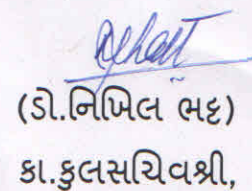 (ડો.નિખિલ ભટ્ટ)
કા.કુલસચિવશ્રી,